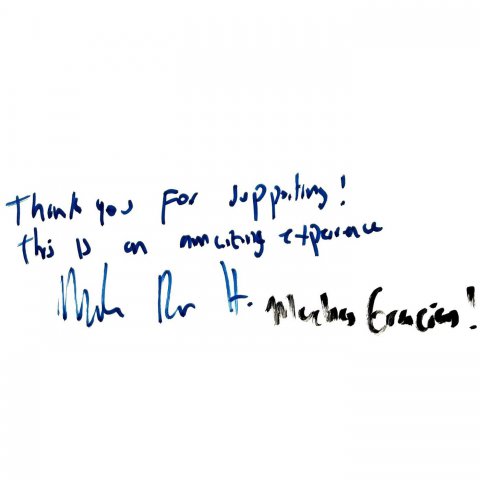 Thank you for supporting!
this is an amazing experience
Muchas Gracias!